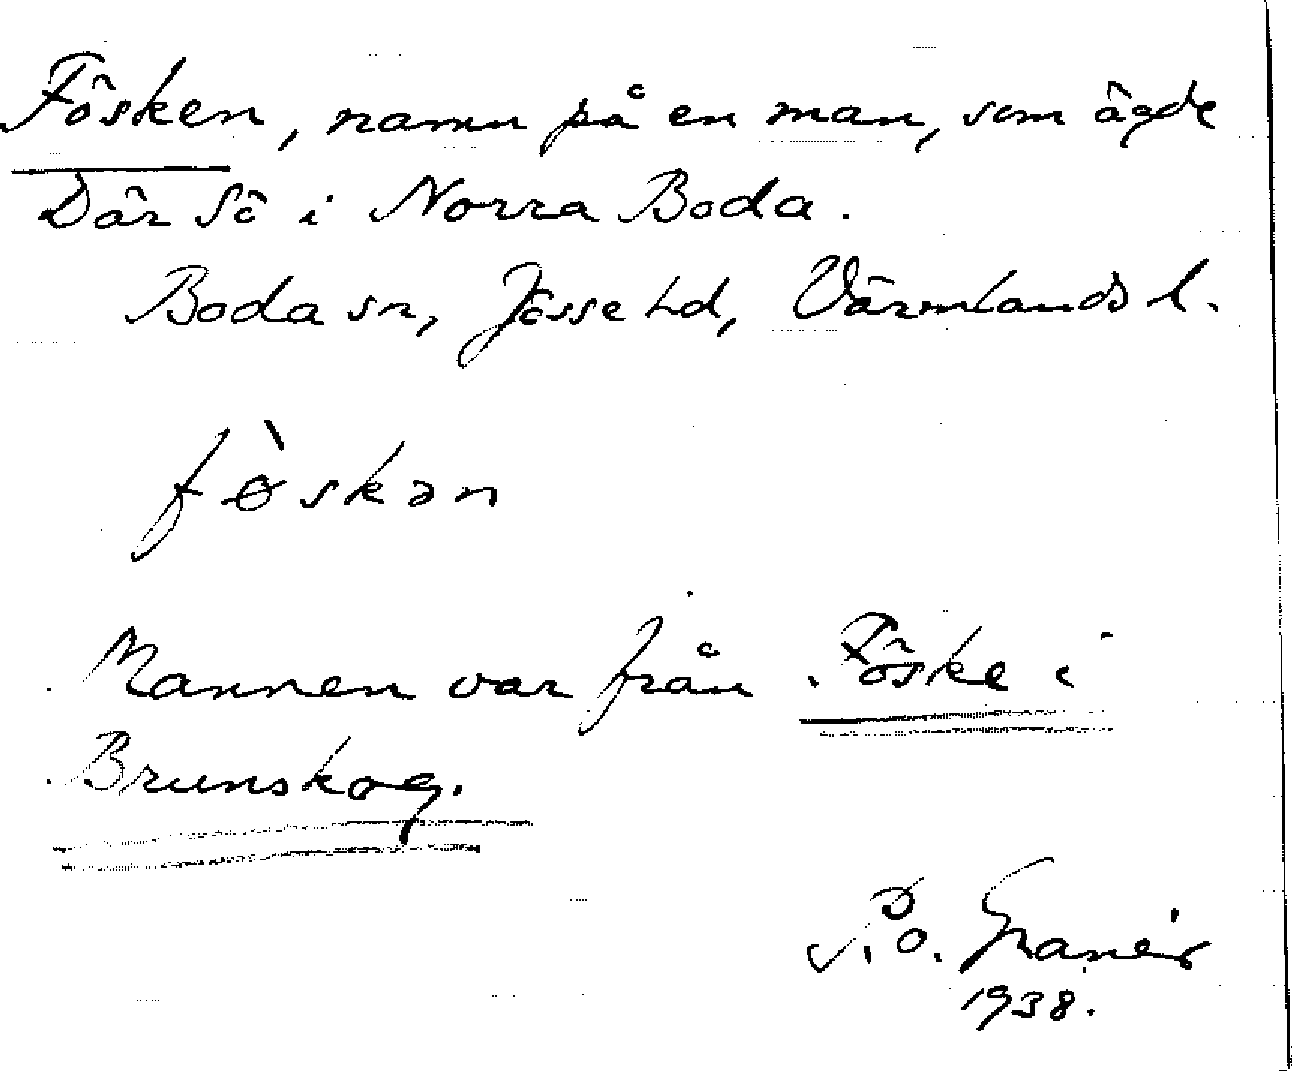 Fösken, namn på en man, som ägde
Där Sö i Norra Boda.
Boda sn, Jösse hd, Värmlands l.
fø̀skən
Mannen var från Föske i
Brunskog.
P.O. Granér
1938.